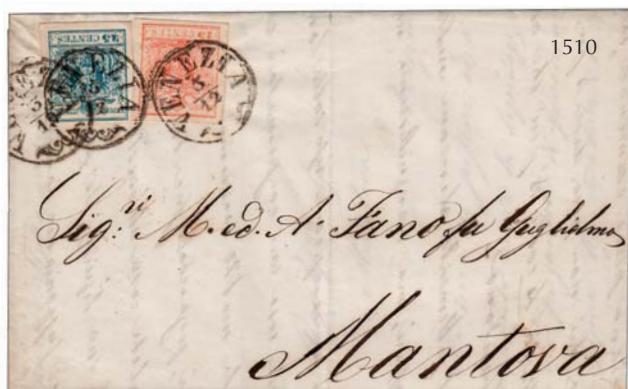 1510
45 CENTES
15 CENTES
VENEZIA
5/12
VENEZIA
5/12
Sig:ri M. ed. A. Fano fu Guglielmo
Mantova